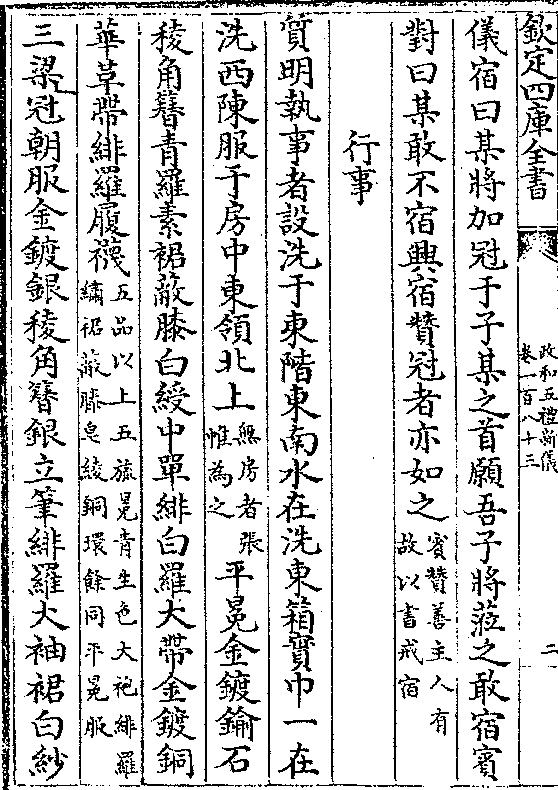 欽定四庫全書
政和五禮新儀
卷一百八十三
二
儀宿曰某將加冠于子某之首願吾子將蒞之敢宿賓
對曰某敢不宿興宿贊冠者亦如之賓贊善主人有故以書戒宿
行事
質明執事者設洗于東階東南水在洗東箱實巾一在
洗西陳服于房中東領北上無房者張帷為之平冕金鍍鍮石
稜角簪青羅素裙蔽膝白綬中單緋白羅大帶金鍍銅
華革帶緋羅履襪五品以上五旒冕青生色大袍緋羅繡裙蔽膝皂綾銅環餘同平冕服
三梁冠朝服金鍍銀稜角簪銀立筆緋羅大袖裙白紗